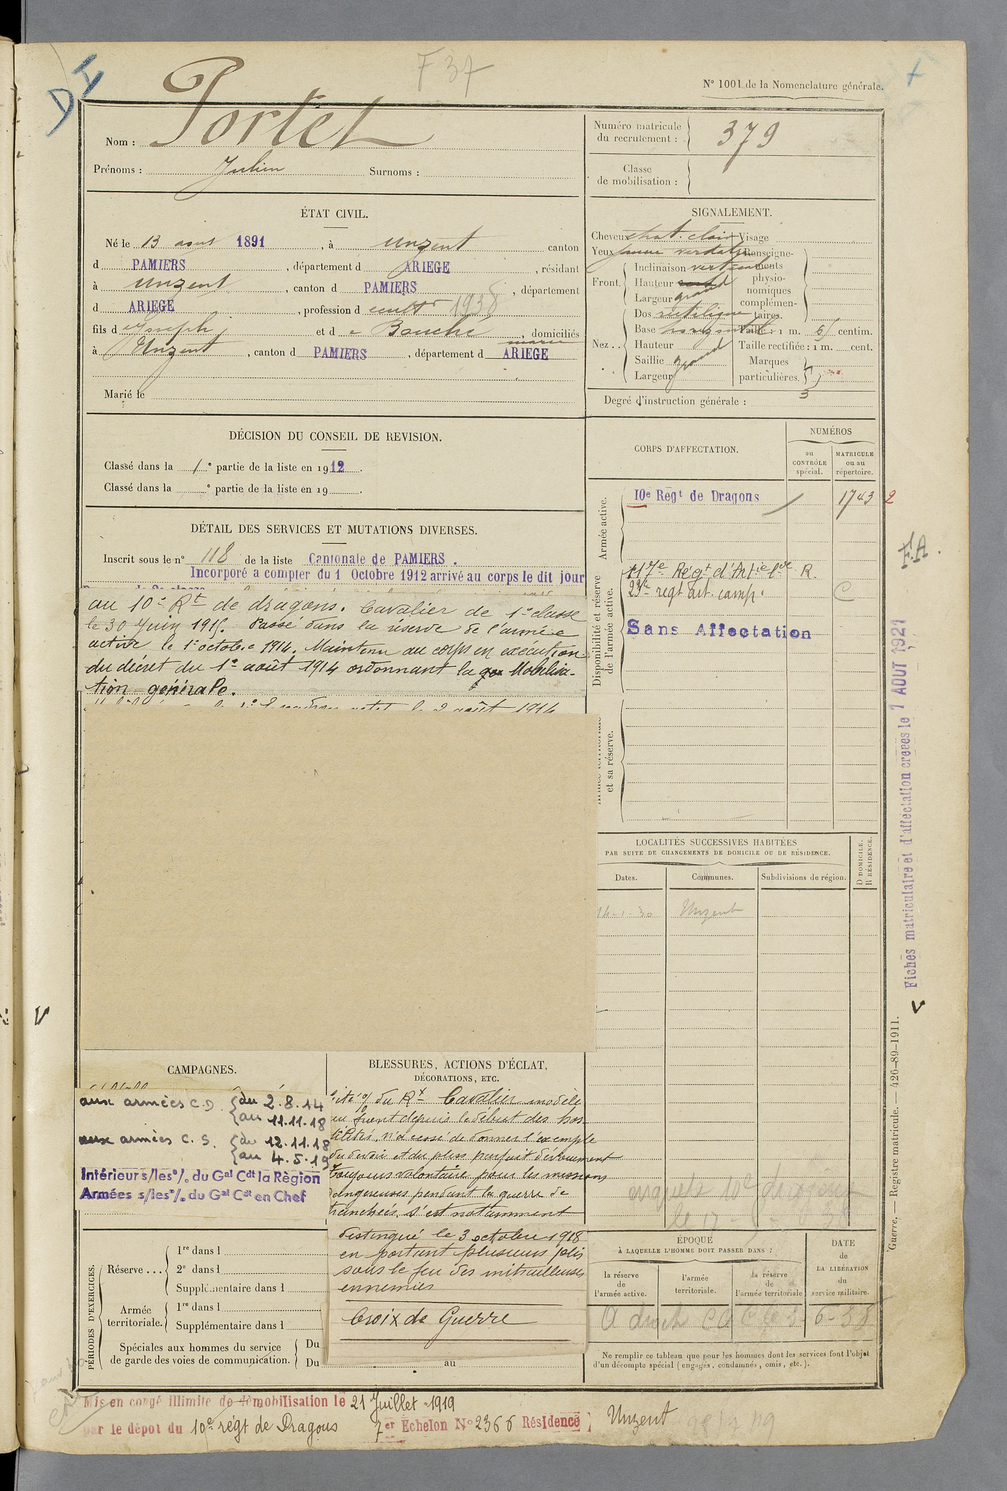 F 37
D I
N° 1001 de la Nomenclature générale.
Nom : Portet
Prénoms : Julien Surnoms :
Numéro matricule du recrutement : 379
Classe de mobilisation :
ÉTAT CIVIL.
Né le 13 août 1891, à Unzent canton
d PAMIERS, département d ARIEGE, résidant
à Unzent, canton d PAMIERS, département
d ARIEGE, profession de cultr 1938
fils d Joseph et d e Bouche, domiciliés
à Unzent, canton d PAMIERS, département d ARIEGE
Marié le
SIGNALEMENT.
Cheveux chat. clair Visage
Yeux jaune verdatre Renseignements physionomiques complémentaires.
Front. Inclinaison vertical
Hauteur
Largeur grand
Nez. Dos rectiligne
Base horizontale Taille : 1 m. 61 centim.
Hauteur Taille rectifiée : 1 m. cent.
Saillie grand Marques
Largeur particulières.
Degré d'instruction générale : 3
DÉCISION DU CONSEIL DE REVISION.
Classé dans la 1e partie de la liste en 1912.
Classé dans la e partie de la liste en 19
DÉTAIL DES SERVICES ET MUTATIONS DIVERSES.
Inscrit sous le n° 118 de la liste Cantonale de PAMIERS.
Incorporé a compter du 1 Octobre 1912 arrivé au corps le dit jour
au 10e Rt de dragons. Cavalier de 1e classe
le 30 Juin 191. Passé dans la réserve de l'armée
active le 1er octobre 1914. Maintenu au corps en exécution
du décret du 1er août 1914 ordonnant la Mobilisa-
tion générale.
août 1914
CORPS D'AFFECTATION.
NUMÉROS
au CONTRÔLE spécial.
MATRICULE ou au répertoire.
Armée active.
10e Régt de Dragons 1743 2
Disponibilité et réserve de l'armée active.
117e Régt d'Artie lde R.
23e regt art. camp. C
Sans Affectation
et sa réserve.
F.A.
Fiches matriculaire et d'affectation créées le 7 AOUT 1921
LOCALITÉS SUCCESSIVES HABITÉES
PAR SUITE DE CHANGEMENTS DE DOMICILE OU DE RÉSIDENCE.
Dates. Communes. Subdivisions de région. D DOMICILE. R RÉSIDENCE.
Unzent
CAMPAGNES.
aux armées C.D. du 2.8.14
au 11.11.18
aux armées C.S. du 12.11.18
au 4.5.19
Intérieur s/les %. du Gal Cdt la Règion
Armées s/les %. du Gal Cdt en Chef
BLESSURES, ACTIONS D'ÉCLAT,
DÉCORATIONS, ETC.
Cité % du Rt Cavalier modèle
au front depuis le début des hos
tilités, n'a cessé de donner l'exemple
du devoir et du plus parfait dévouement
Toujours volontaire pour les missions
dangereuses pendant la guerre de
tranchées. S'est notamment
distingué le 3 octobre 1918
en portant plusieurs plis
sous le feu des mitrailleuses
ennemies
Croix de Guerre
PÉRIODES D'EXERCICES.
Réserve... 1re dans l
2e dans l
Supplémentaire dans l
Armée territoriale. 1re dans l
Supplémentaire dans l
Spéciales aux hommes du service de garde des voies de communication. Du
Du au
10e dragons
ÉPOQUE
À LAQUELLE L'HOMME DOIT PASSER DANS :
la réserve de l'armée active.
l'armée territoriale.
la réserve de l'armée territoriale
DATE de LA LIBÉRATION du service militaire.
Ne remplir ce tableau que pour les hommes dont les services font l'objet
d'un décompte spécial (engagés, condamnés, omis, etc.).
Guerre. — Registre matricule. — 426-89-1911.
Mis en congé illimité de démobilisation le 21 Juillet 1919
par le dépot du 10e régt de Dragons 7er Echelon N° 2366 Résidence Unzent